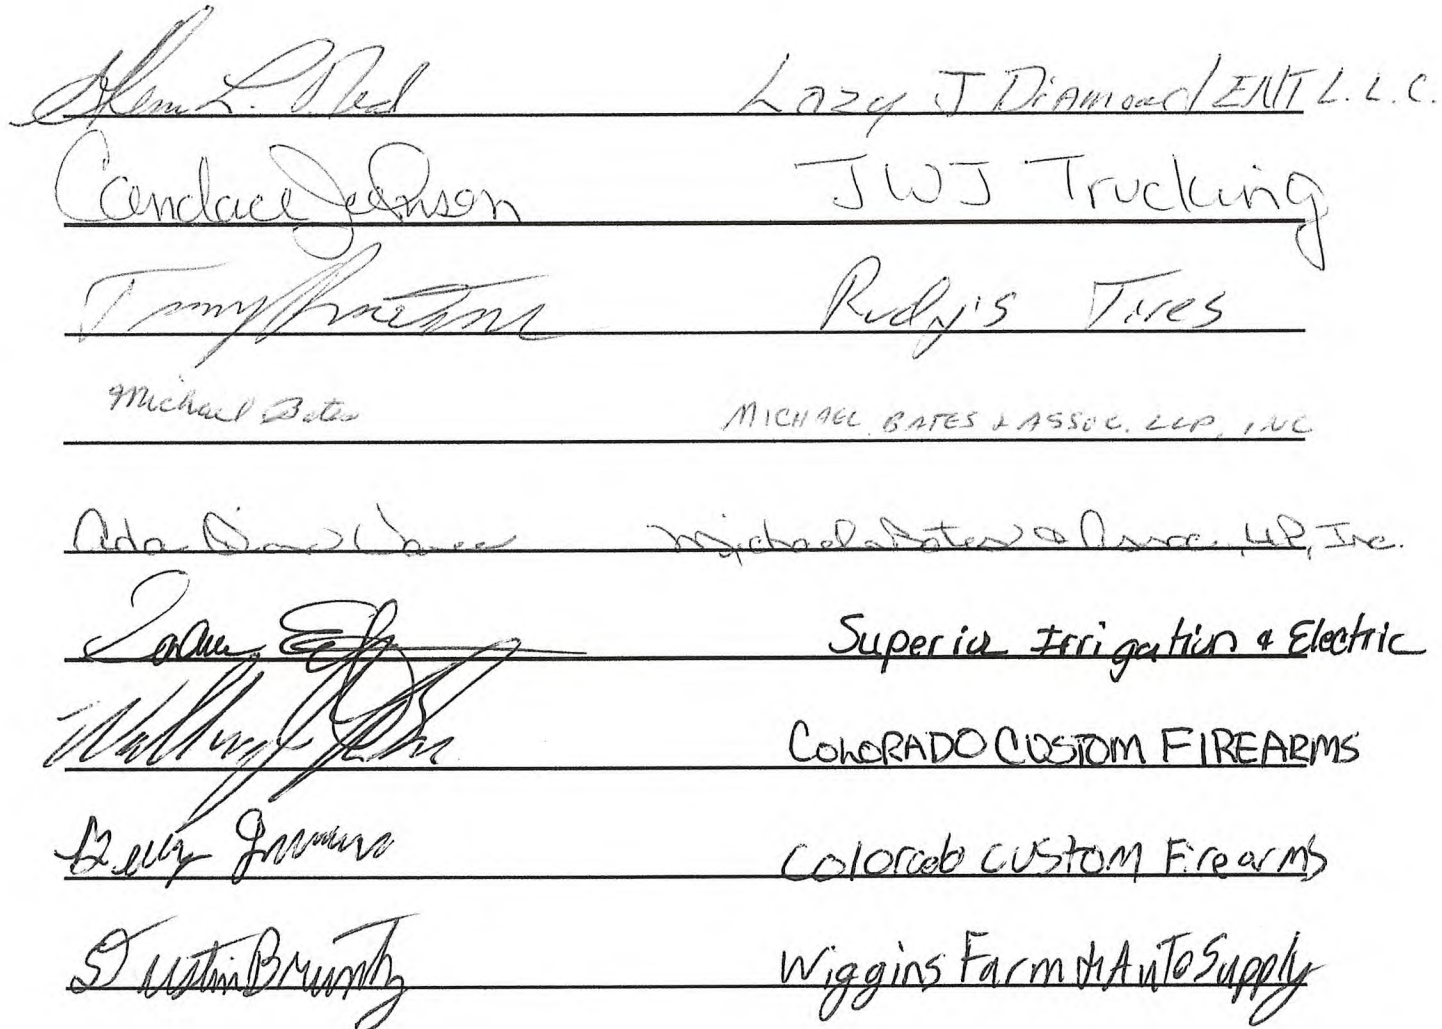 Glenn L. Ned Lazy J Diamond ENT L.L.C.
Candace Johnson JWJ Trucking
Rudy's Tires
Michael Bates MICHAEL BATES & ASSOC. LLP, INC
Ada Michael Bates & Assoc. LLP, Inc.
Superior Irrigation & Electric
COLORADO CUSTOM FIREARMS
Colorado Custom Firearms
Dustin Bruntz Wiggins Farm & Auto Supply